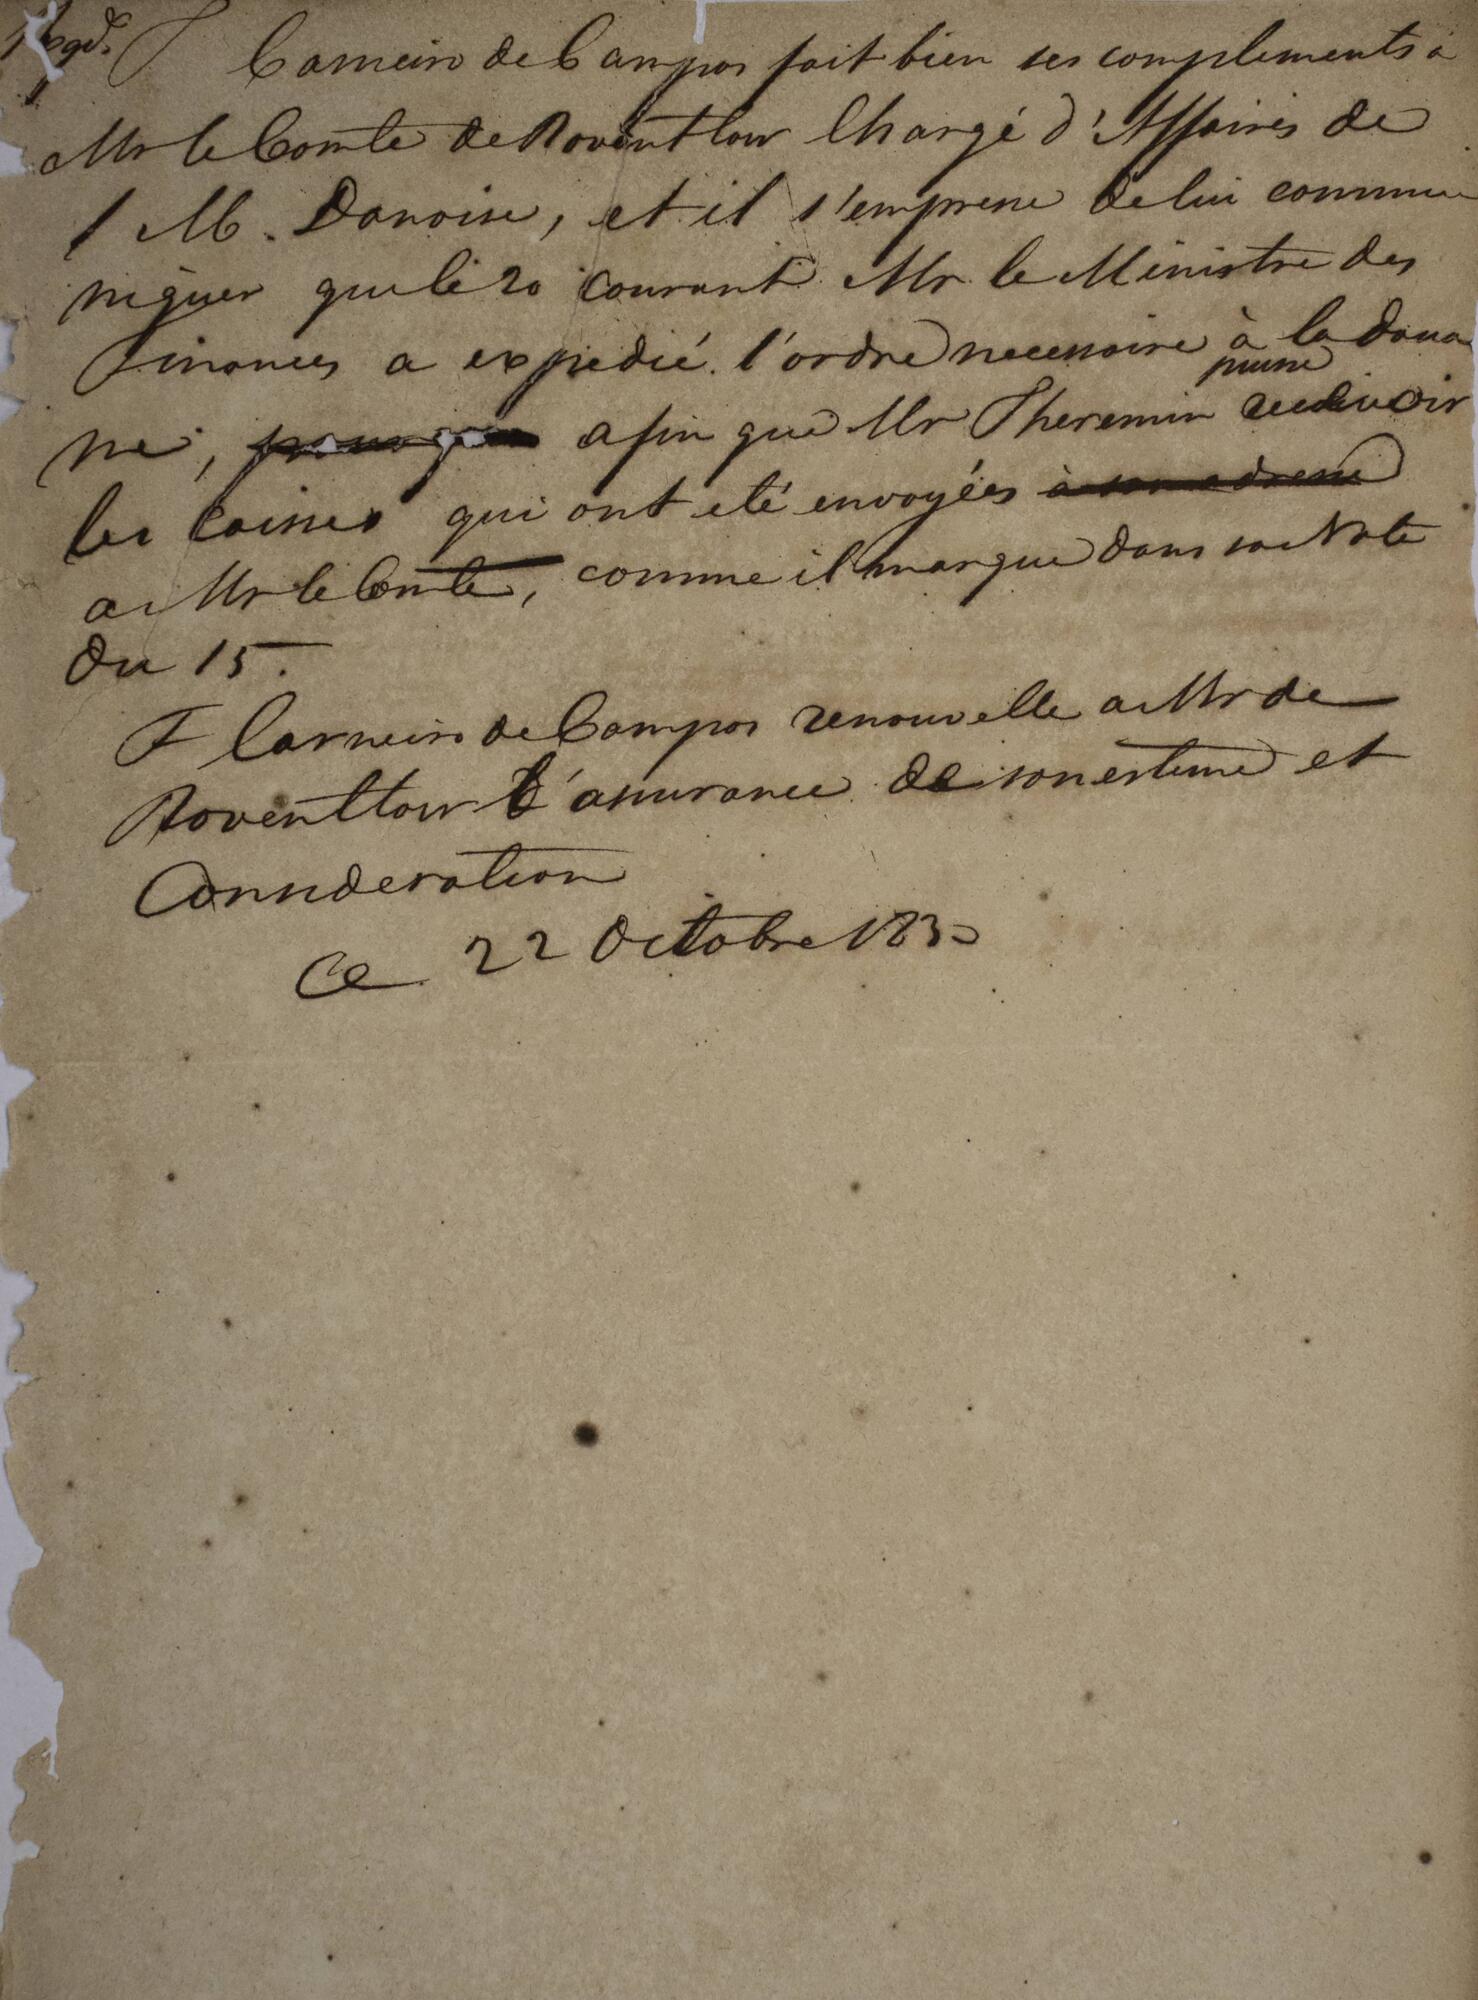 F Carneiro de Campos fait bien ses compliments à
Mr le Comte de Roventlow Chargé d'Affaires de
S M. Danoise, et il s'empresse de lui commu
niquer que le 20 courant Mr. le Ministre des
Finances a expedié l'ordre necessaire à la doua
ne, pour que afin que Mr Theremin puisse recevoir
les caisses qui ont eté envoyées à son adresse
a Mr le Comte, comme il marque dans sa Note
du 15.
F Carneiro de Campos renouvelle a Mr de
Roventlow l'assurance de son estime et
Consideration
Ce 22 Octobre 1830